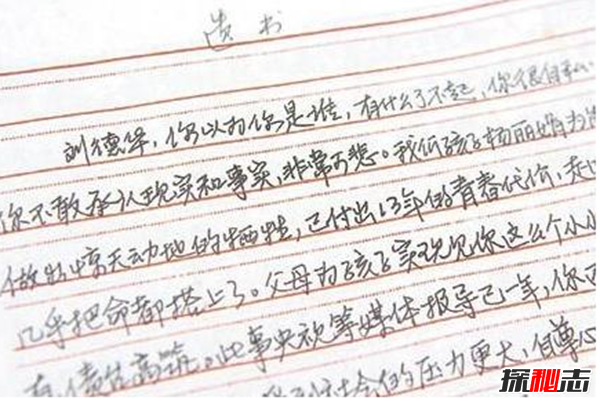 遗书
刘德华,你以为你是谁,有什么了不起,你很自私
你不敢承认现实和事实,非常可悲。我低孩子杨丽娟为
做出惊天动地的牺牲,已付出13年的青春代价,走
几乎把命都搭上了。父母为孩子实现见你这么个小小
债台高筑。此事央视等媒体报导已一年,你
社会的压力更大,自尊心
探秘志